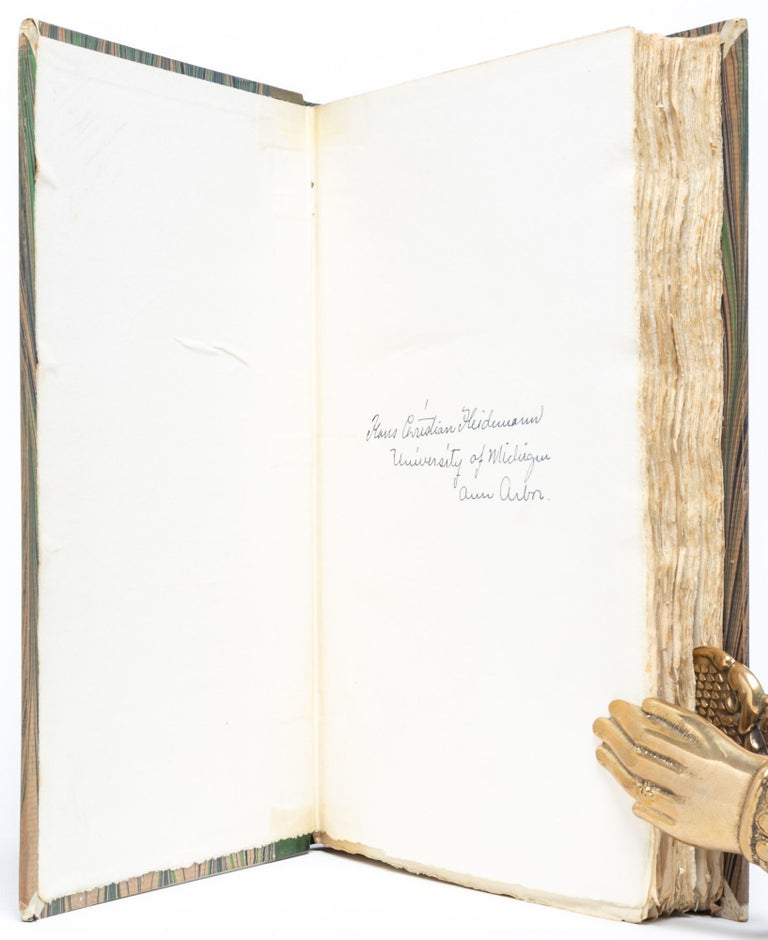 Hans Christian Heidemann
University of Michigan
Ann Arbor.